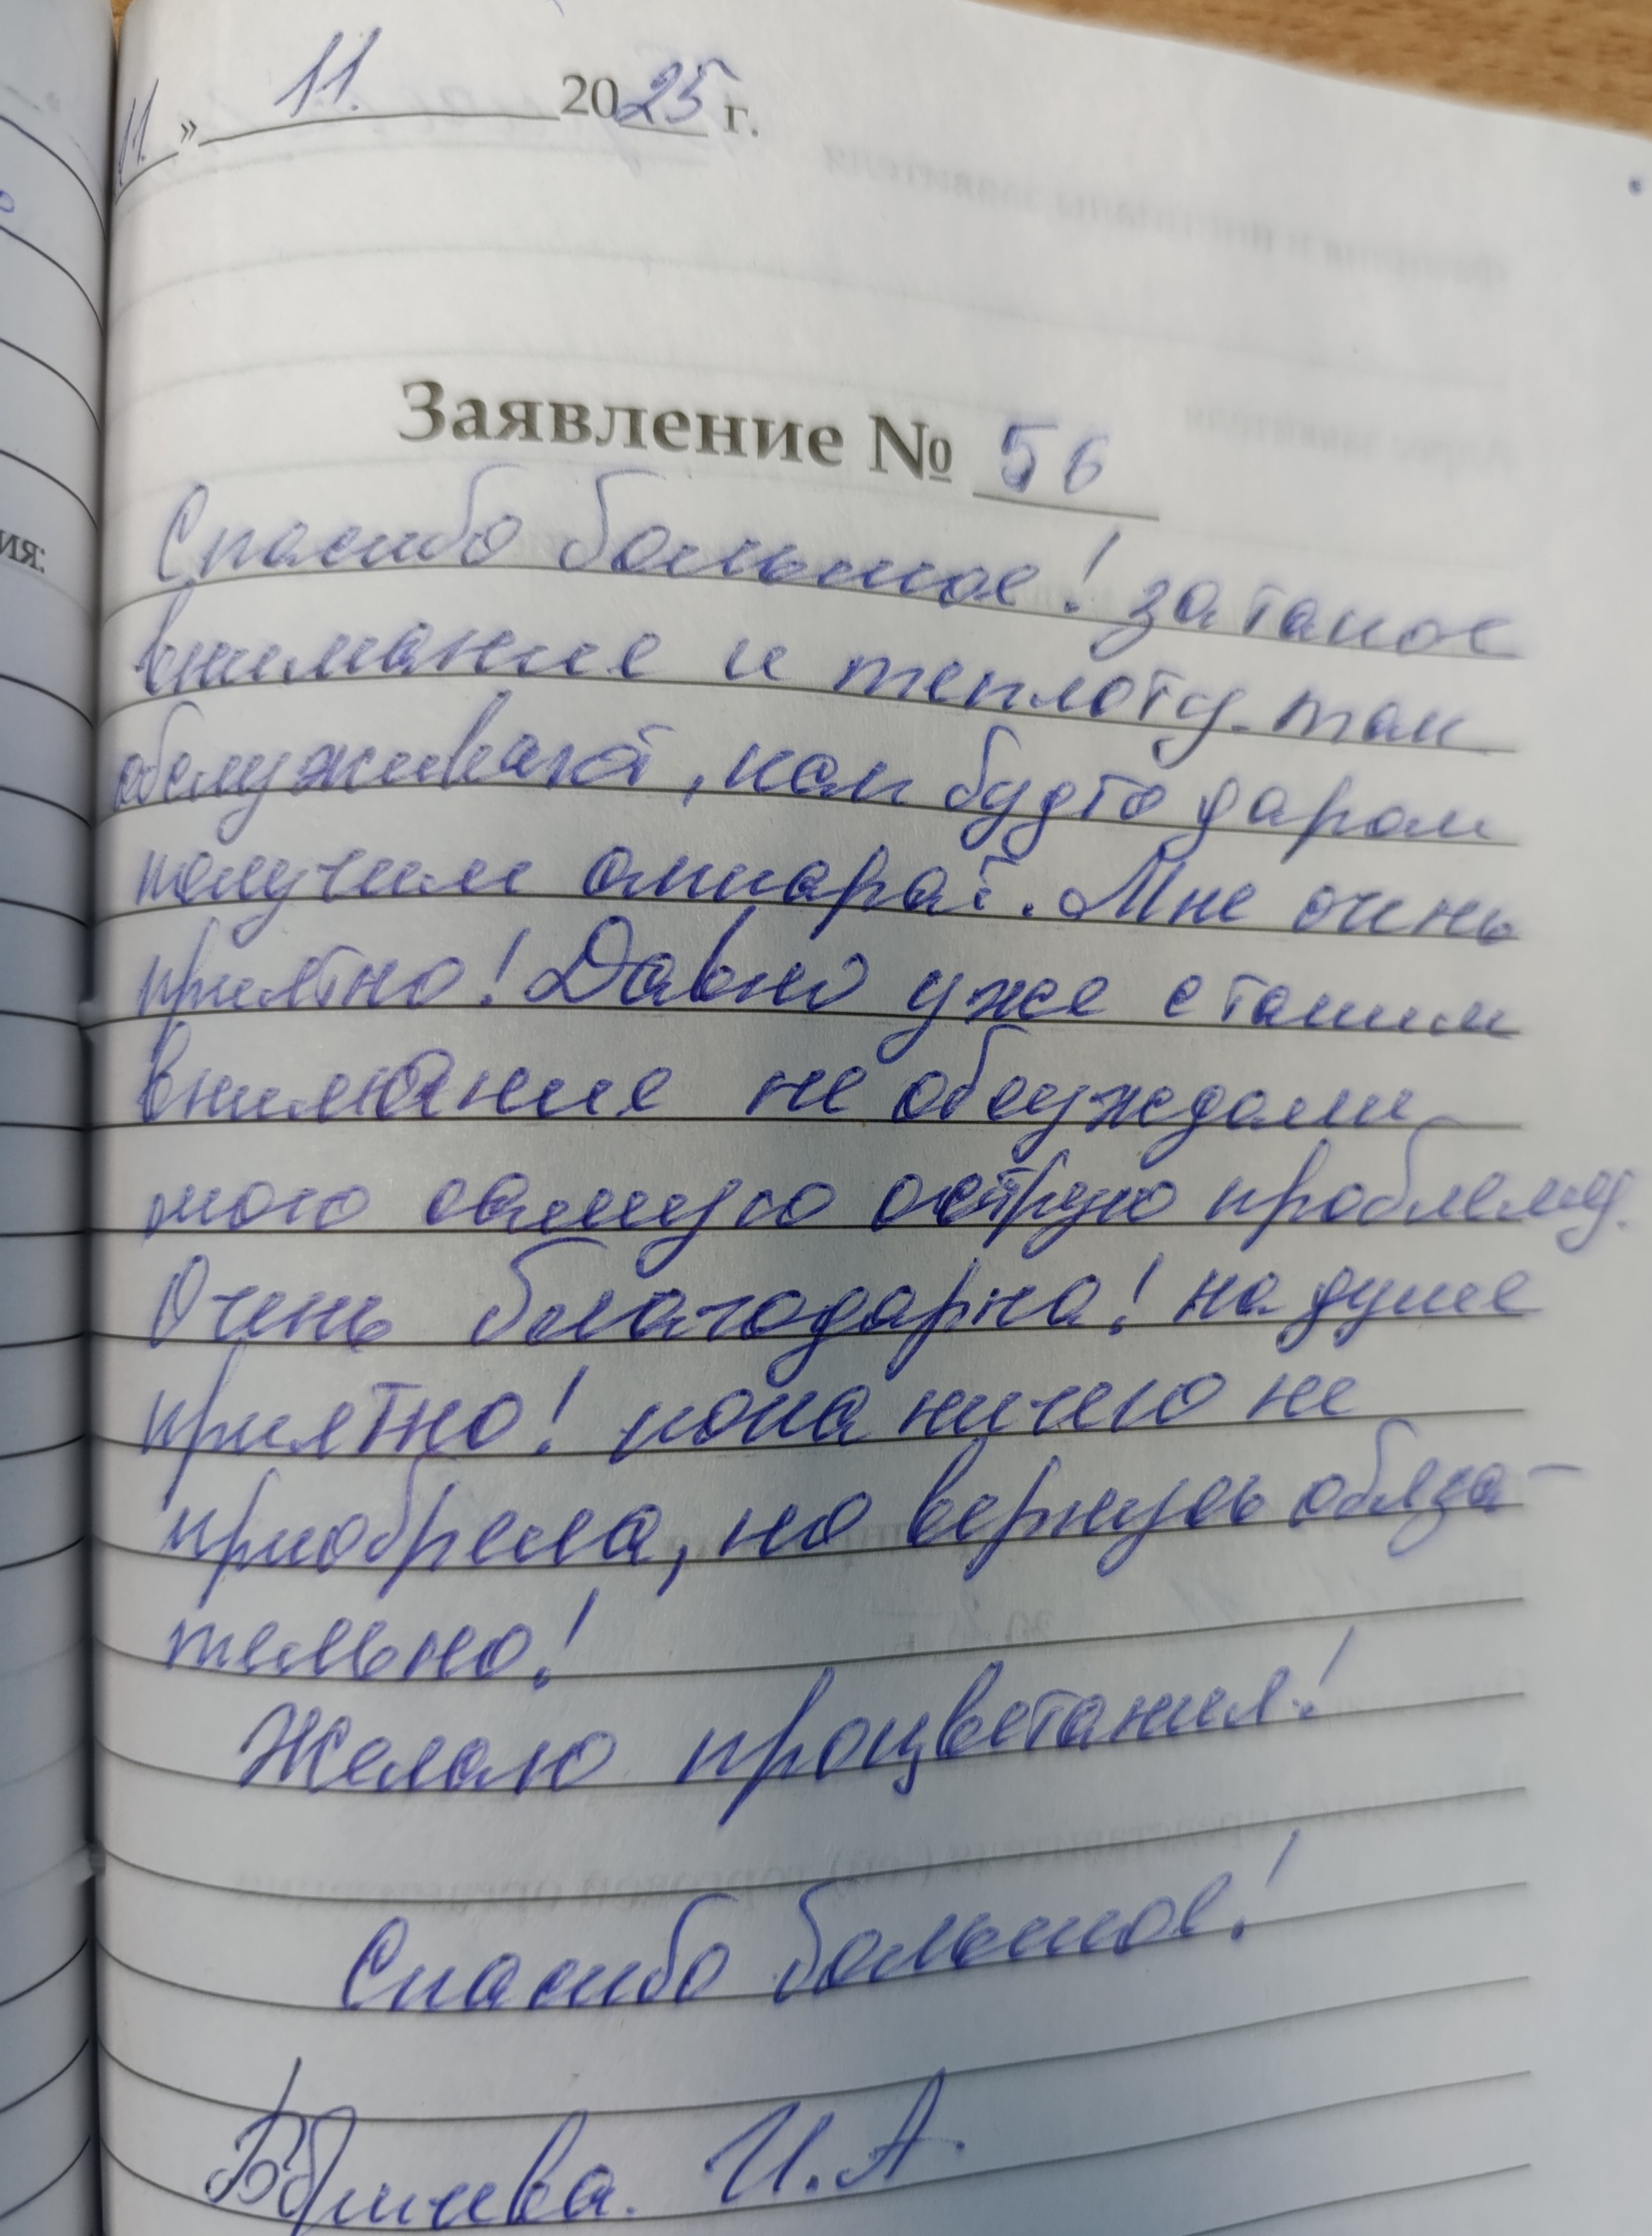 11. » 11. 2025 г.
Заявление № 56
Спасибо большое! за такое
внимание и теплоту. так
обслуживают, как будто даром
получим аппарат. Мне очень
приятно! Давно уже с таким
внимание не обсуждали
мою самую острую проблему.
Очень благодарна! на душе
приятно! пока ничего не
приобрела, но вернусь обяза-
тельно!
Желаю процветания!
Спасибо большое!
И.А.
ия: